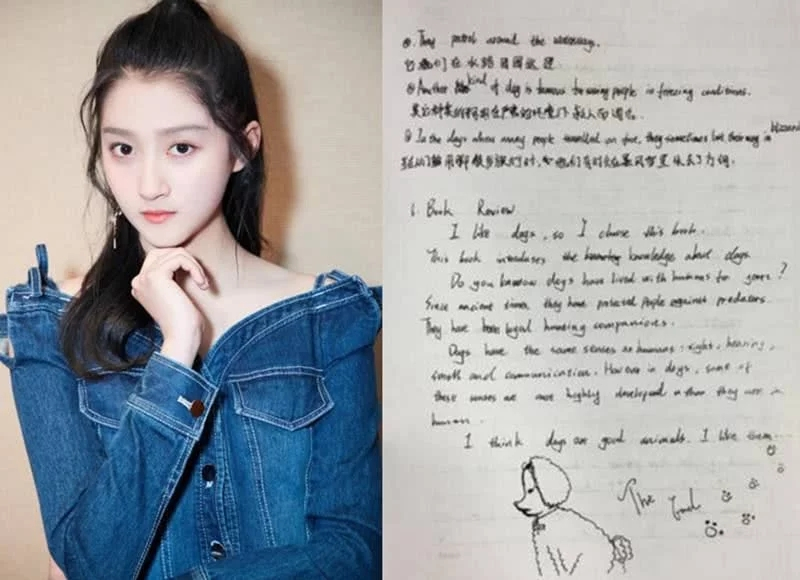 They patrol around the waterways.
它们在水路周围巡逻
Another kind of dog is famous for saving people in freezing conditions.
其它种类的狗狗在严寒的环境下救人而闻名.
In the days when many people travelled on foot, they sometimes lost their way in blizzard
在人们步旅行时, 他们有时会在暴风雪里失去了方向.
1. Book Review
I like dogs, so I choose this book.
This book introduces the knowledge about dogs.
Do you know dogs have lived with humans for years?
Since ancient times, they have protected people against predators.
They have been loyal hunting companions.
Dogs have the same senses as humans: sight, hearing,
smell and communication. However in dogs, some of
these senses are more highly developed than they are in
human.
I think dogs are good animals. I like them.
The End